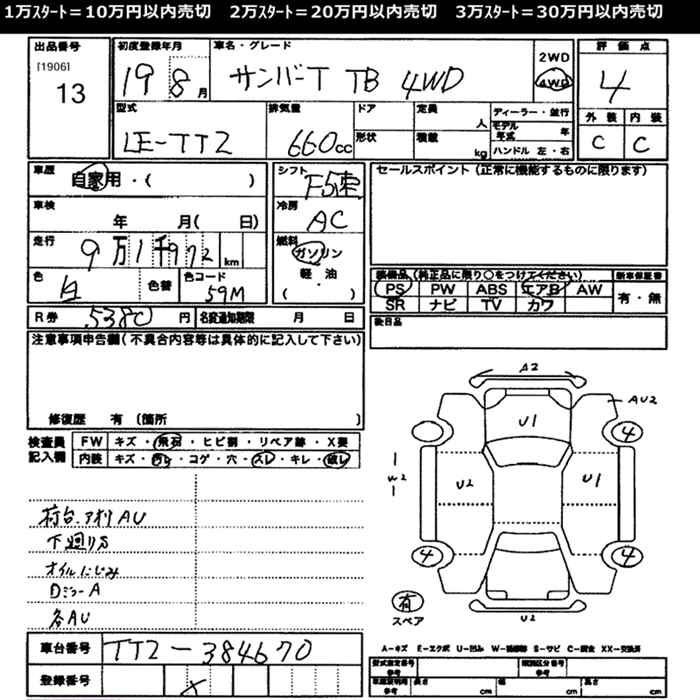 1万ｽﾀｰﾄ＝10万円以内売切 2万ｽﾀｰﾄ＝20万円以内売切 3万ｽﾀｰﾄ＝30万円以内売切
出品番号 初度登録年月 車名・グレード 評価点
[1906]
13
19 8月 サンバーT TB 4WD
2WD
4WD
4
型式 排気量 ドア 定員 人 ディーラー・並行
モデル年式 年
外装 内装
LE-TT2 660cc 形状 積載 kg ハンドル 左・右
C C
車歴 自家用・( )
シフト F5速
セールスポイント (正常に機能するものに限ります)
車検 年 月( 日)
冷房 AC
走行 9万1千972km
燃料 ガソリン
軽・油
( )
色 白 色替 色コード 59M
装備品 (純正品に限り○をつけてください) 新車保証書
PS PW ABS エアB AW 有・無
SR ナビ TV カワ
R券 5380円 名変通知期限 月 日
後日品
注意事項申告欄(不具合内容等は具体的に記入して下さい)
修復歴 有 (箇所 )
検査員記入欄
FW キズ・飛石・ヒビ割・リペア跡・X要
内装 キズ・汚レ・コゲ・穴・スレ・キレ・破レ
荷台.アオリAU
下廻りS
オイルにじみ
Dミラー A
各AU
A2
U1
AU2
4
W2
U2
U1
4
4
有
スペア
U2
車台番号 TT2-384670
登録番号 X
A－キズ E－エクボ U－凹み W－補修跡 S－サビ C－腐食 XX－交換済
型式指定番号 参考 類別区分番号 参考
車庫証明用 参考 長さ cm 幅 cm 高さ cm